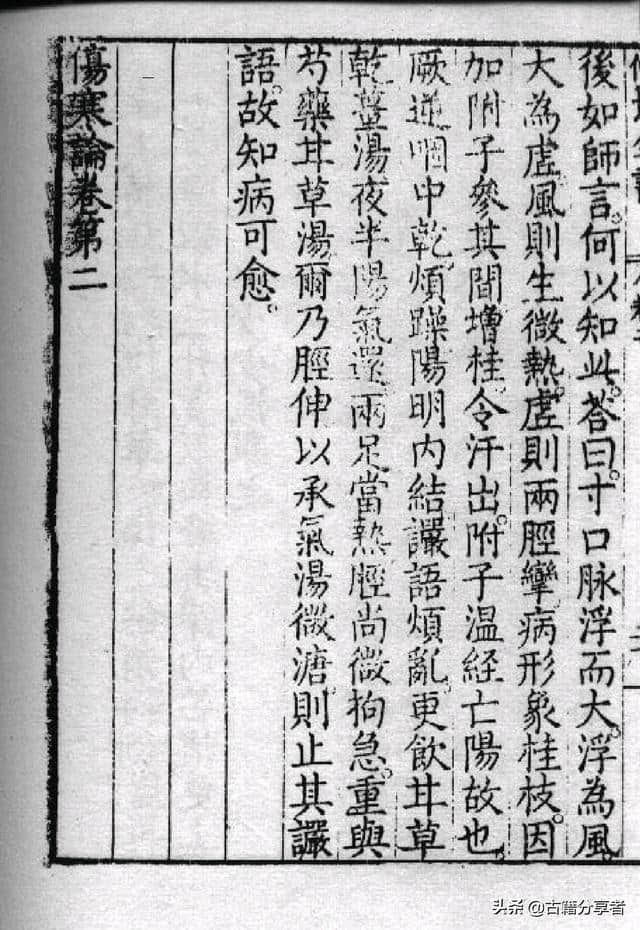 後如師言何以知此答曰寸口脉浮而大浮為風
大為虛風則生微熱虛則兩脛攣病形象桂枝因
加附子參其間增桂令汗出附子温経亡陽故也
厥逆咽中乾煩躁陽明內結讝語煩亂更飲甘草
乾薑湯夜半陽氣還兩足當熱脛尚微拘急重與
芍藥甘草湯爾乃脛伸以承氣湯微溏則止其讝
語故知病可愈
傷寒論卷第二
头条 @古籍分享者